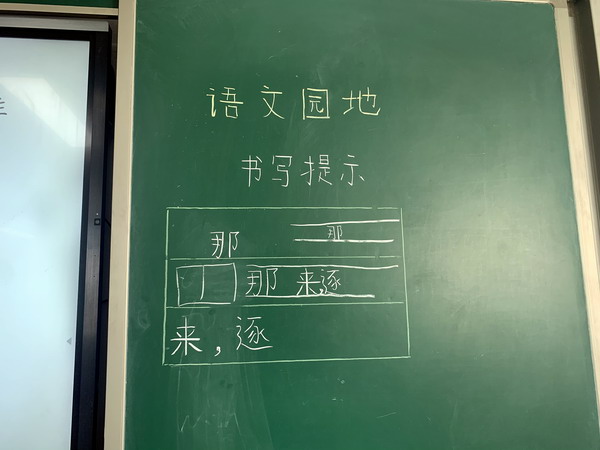 语文园地
书写提示
那 那
那 来逐
来，逐